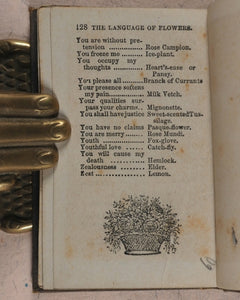 128 THE LANGUAGE OF FLOWERS.
You are without pre-
tension .............. Rose Campion.
You freeze me ...... Ice-plant.
You occupy my
thoughts .............. Heart's-ease or
Pansy.
You please all ....... Branch of Currants
Your presence softens
my pain............... Milk Vetch.
Your qualities sur-
pass your charms.. Mignonette.
You shall have justice Sweet-scented Tus-
silage.
You have no claims Pasque-flower.
You are merry ....... Rose Mundi.
Youth .................. Fox-glove.
Youthful love ...... Catch-fly.
You will cause my
death ............... Hemlock.
Zealousness ......... Elder.
Zest ..................... Lemon.